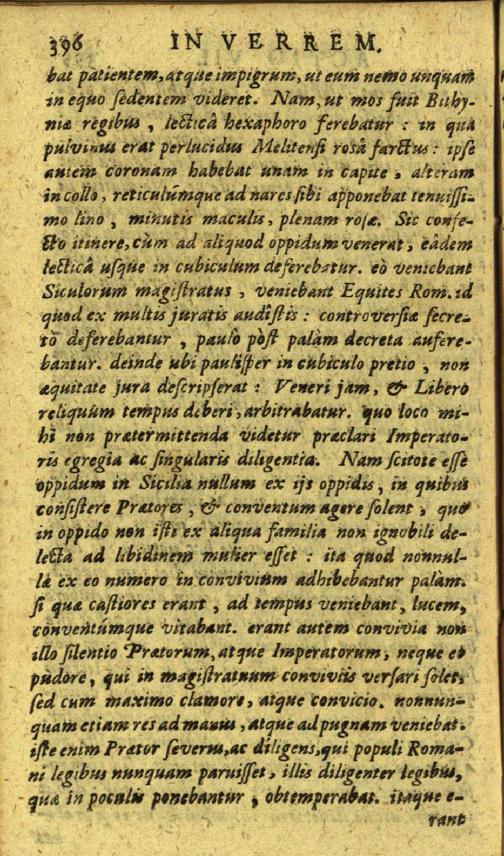 396 IN VERREM.
bat patientem, atque impigrum, ut eum nemo unquam
in equo sedentem videret. Nam, ut mos fuit Bithy-
niæ regibus, lecticâ hexaphoro ferebatur: in quâ
pulvinus erat perlucidus Melitensi rosâ farctus: ipse
autem coronam habebat unam in capite, alteram
in collo, reticulúmque ad nares sibi apponebat tenuissi-
mo lino, minutis maculis, plenam rosæ. Sic confe-
cto itinere, cùm ad aliquod oppidum venerat, eâdem
lecticâ usque in cubiculum deferebatur. eò veniebant
Siculorum magistratus, veniebant Equites Rom. id
quod ex multis juratis audistis: controversiæ secre-
tò deferebantur, paulò pòst palàm decreta aufere-
bantur. deinde ubi paulisper in cubiculo pretio, non
æquitate jura descripserat: Veneri jam, & Libero
reliquum tempus deberi, arbitrabatur. quo loco mi-
hi non prætermittenda videtur præclari Imperato-
ris egregia ac singularis diligentia. Nam scitote esse
oppidum in Sicilia nullum ex ijs oppidis, in quibus
consistere Prætores, & conventum agere solent, quo
in oppido non isti ex aliqua familia non ignobili de-
lecta ad libidinem mulier esset: ita quod nonnul-
læ ex eo numero in convivium adhibebantur palàm.
si quæ castiores erant, ad tempus veniebant, lucem,
conventúmque vitabant. erant autem convivia non
illo silentio Prætorum, atque Imperatorum, neque eo
pudore, qui in magistratuum conviviis versari solet,
sed cum maximo clamore, atque convicio. nonnun-
quam etiam res ad manus, atque ad pugnam veniebat.
iste enim Prætor severus, ac diligens, qui populi Roma-
ni legibus nunquam paruisset, illis diligenter legibus,
quæ in poculis ponebantur, obtemperabat. itaque e-
rant